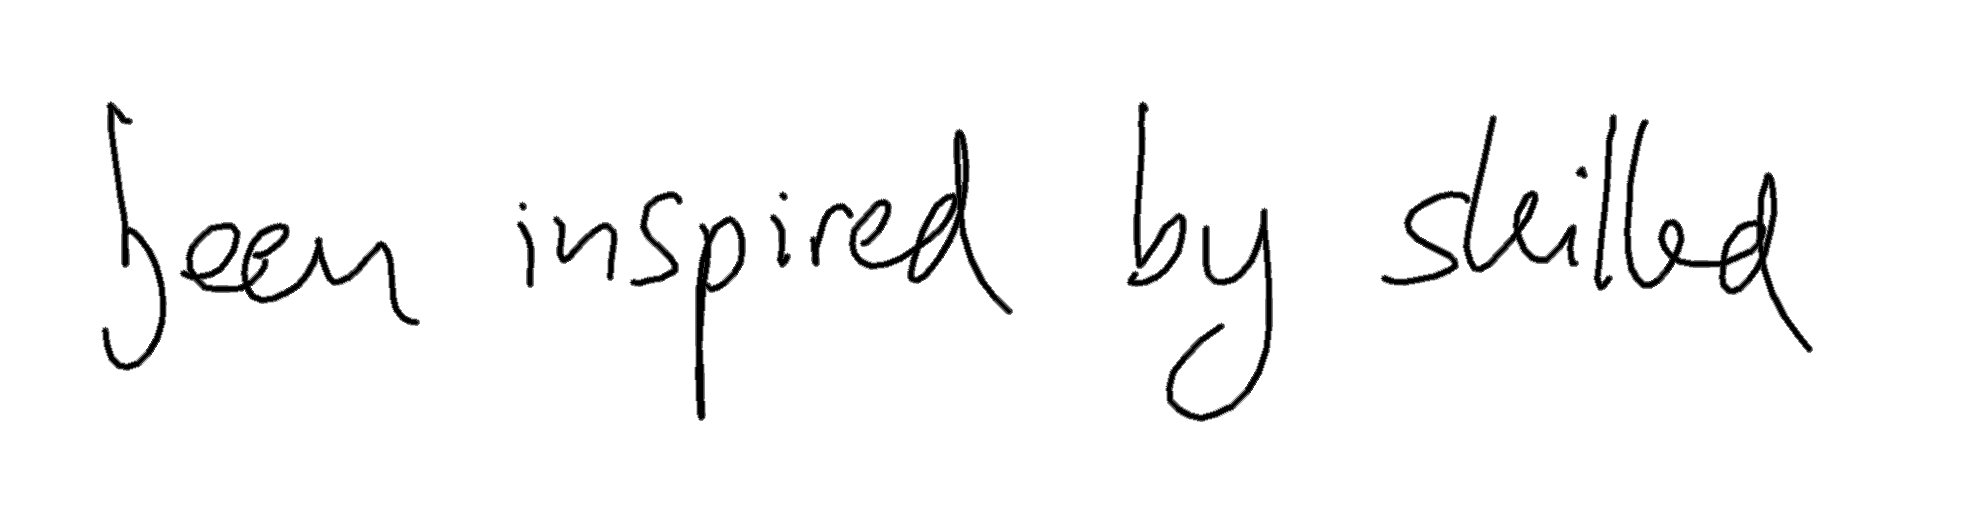 been inspired by skilled